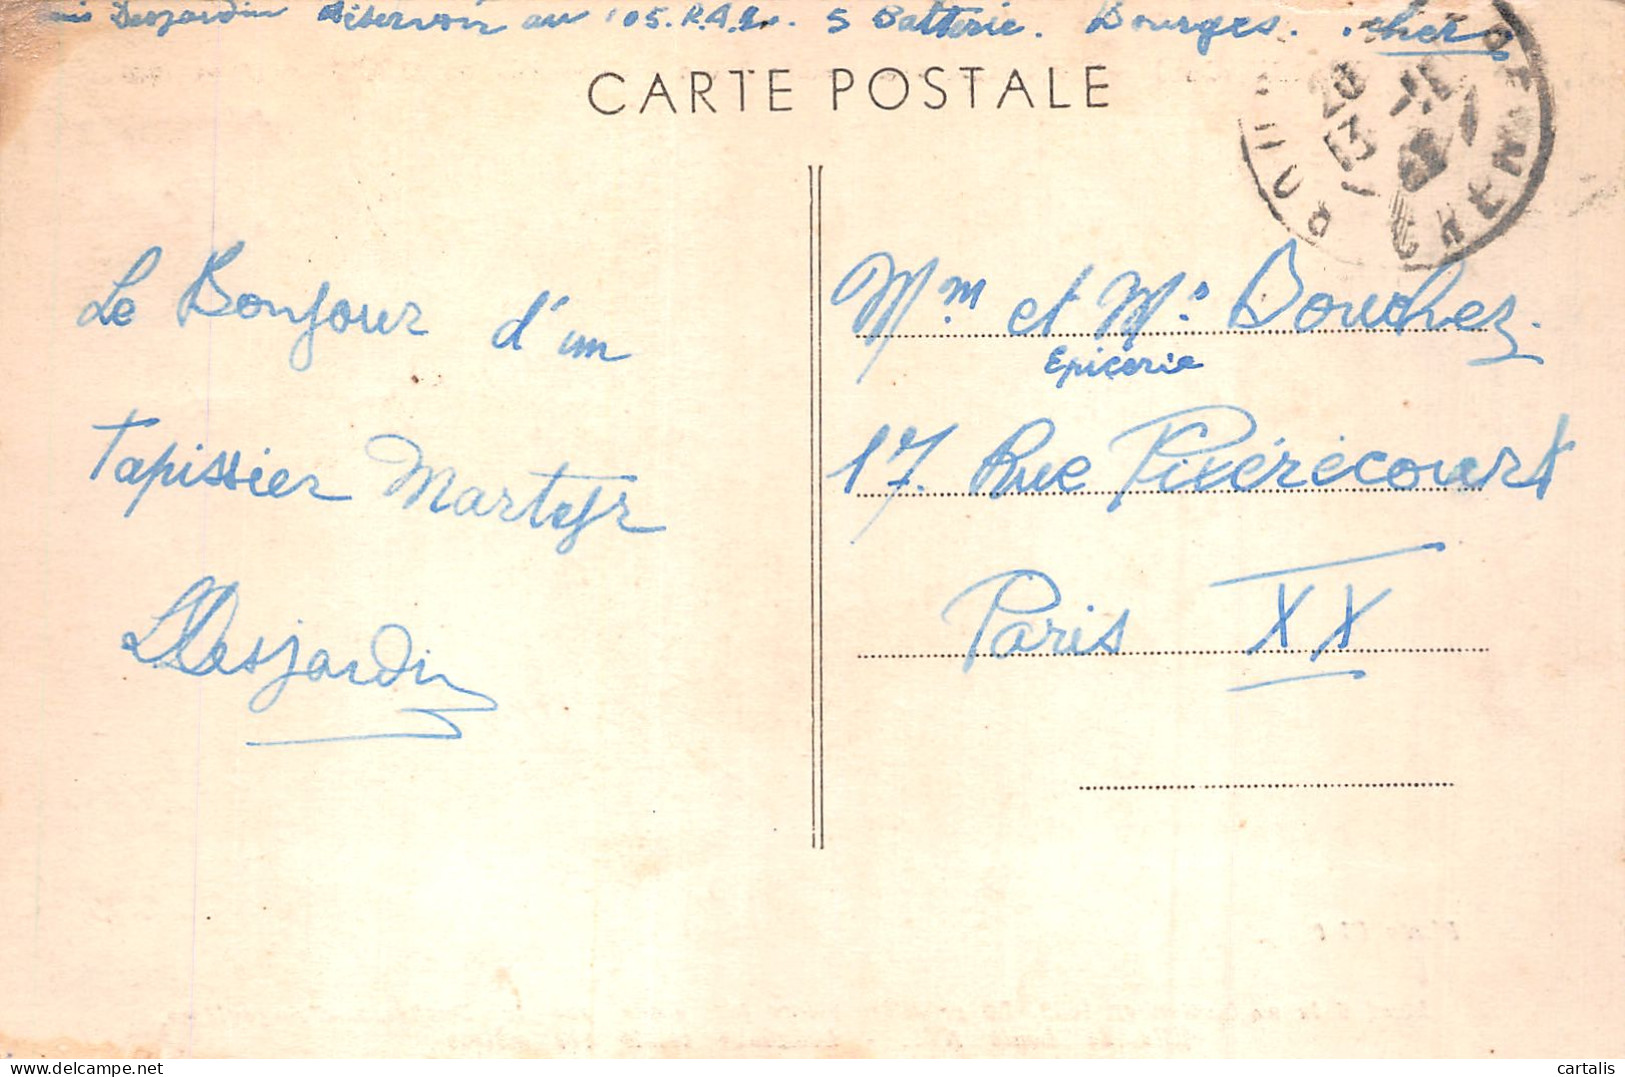 Desjardin Réservoir au 105. R.A.L. 5 Batterie. Bourges. Cher
CARTE POSTALE
Le Bonjour d'un
Tapissier Martyr
LDesjardin
Mm et Mr Bouchez.
Epicerie
17. Rue Pixérécourt
Paris XX
cartalis